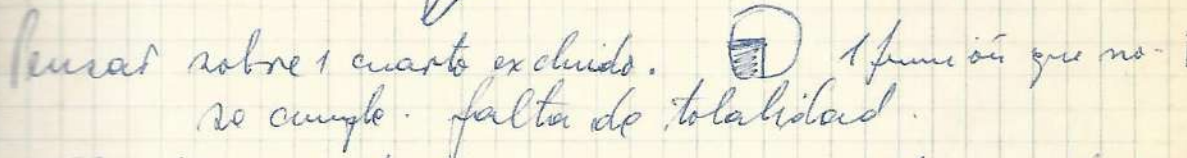 Pensar sobre 1 cuarto excluido. 1 función que no
se cumple. falta de totalidad.